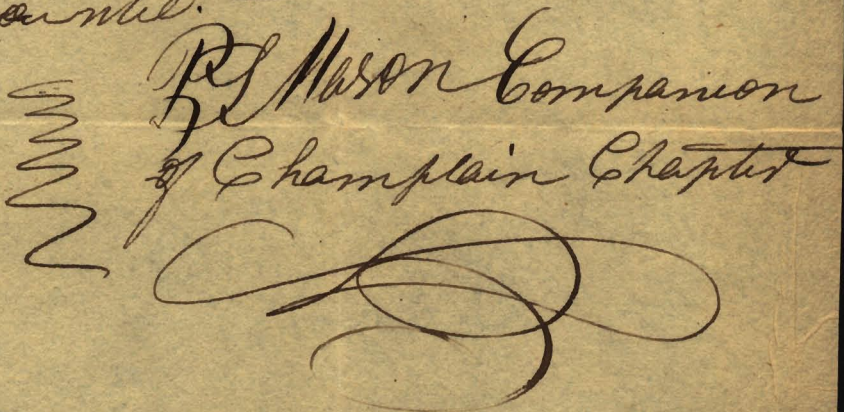 P S Mason Companion
of Champlain Chapter